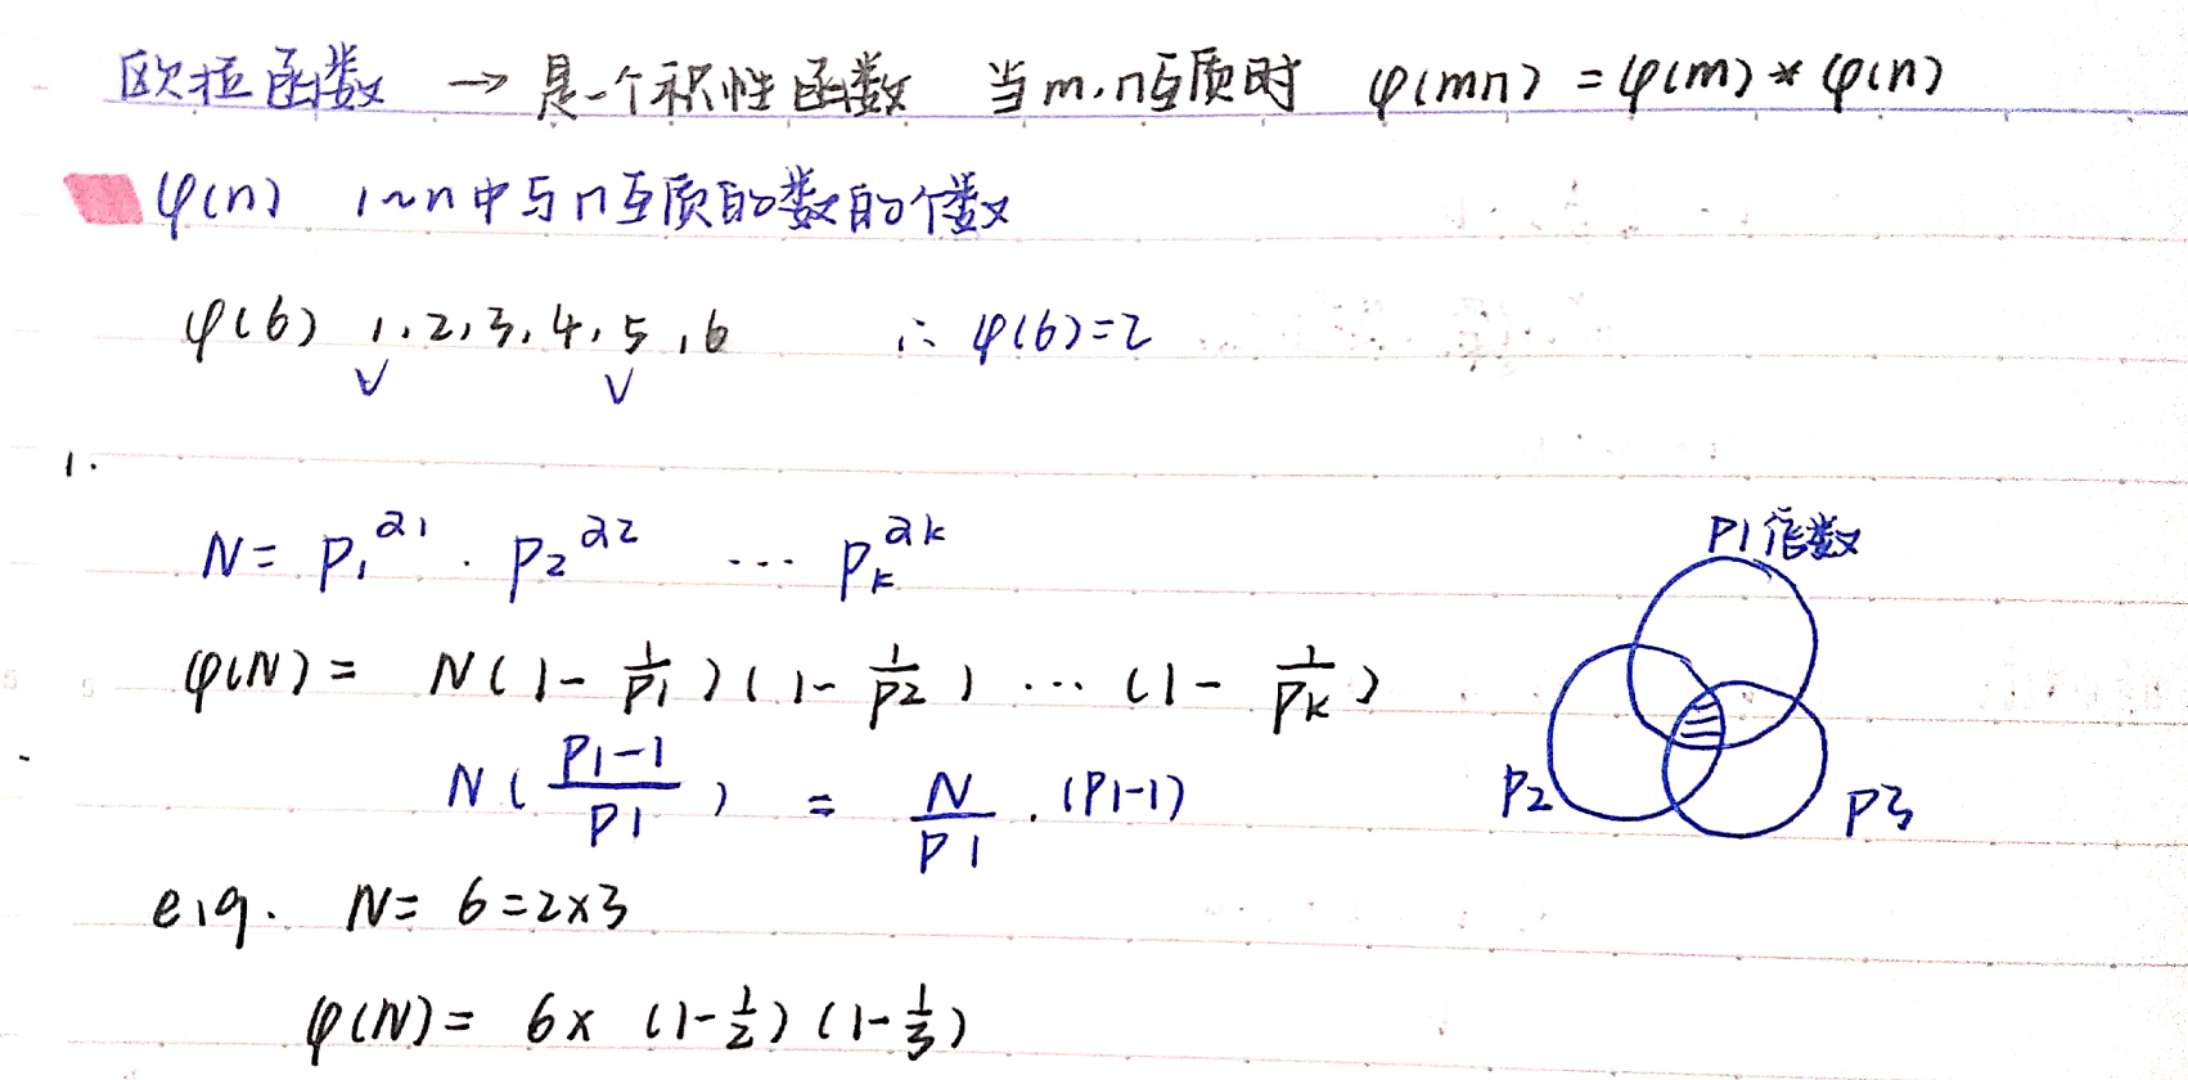 欧拉函数 → 是一个积性函数 当m,n互质时 φ(mn) = φ(m) * φ(n)
φ(n) 1~n中与n互质的数的个数
φ(6) 1,2,3,4,5,6 ∴ φ(6)=2
✓ ✓
1.
N = p₁^a1 · p₂^a2 ... pₖ^ak
P1倍数
φ(N) = N(1-1/P1)(1-1/P2) ... (1-1/Pk)
N(P1-1/P1) = N/P1 · (P1-1)
P2 P3
e.g. N= 6=2×3
φ(N) = 6× (1-1/2)(1-1/3)